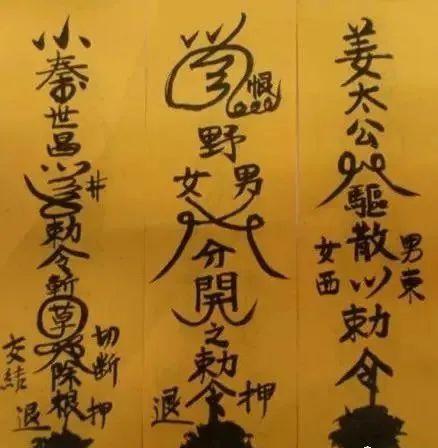 姜太公驅散勅令
男東
女西
恨
野
男
女
分開之勅令
押
退
小秦世昌
井
勅令斬草除根
切断押
交結退